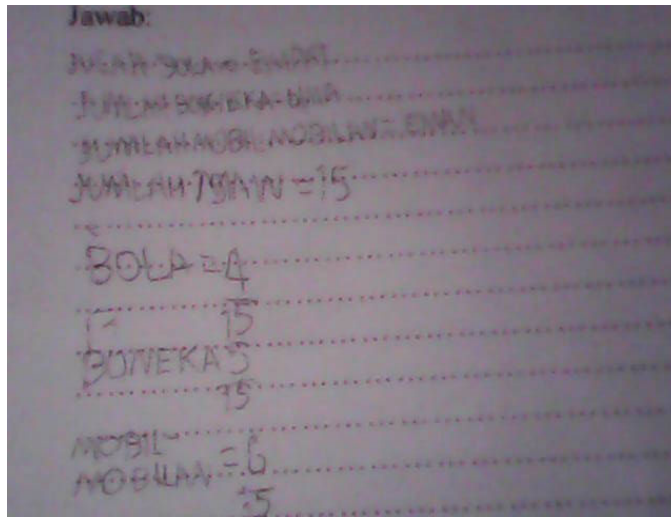 Jawab:
JUMLAH BOLA = EMPAT
JUMLAH BONEKA = LIMA
JUMLAH MOBIL MOBILAN = ENAM
JUMLAH = 15
BOLA = 4
15
BONEKA 5
15
MOBIL-
MOBILAN = 6
15